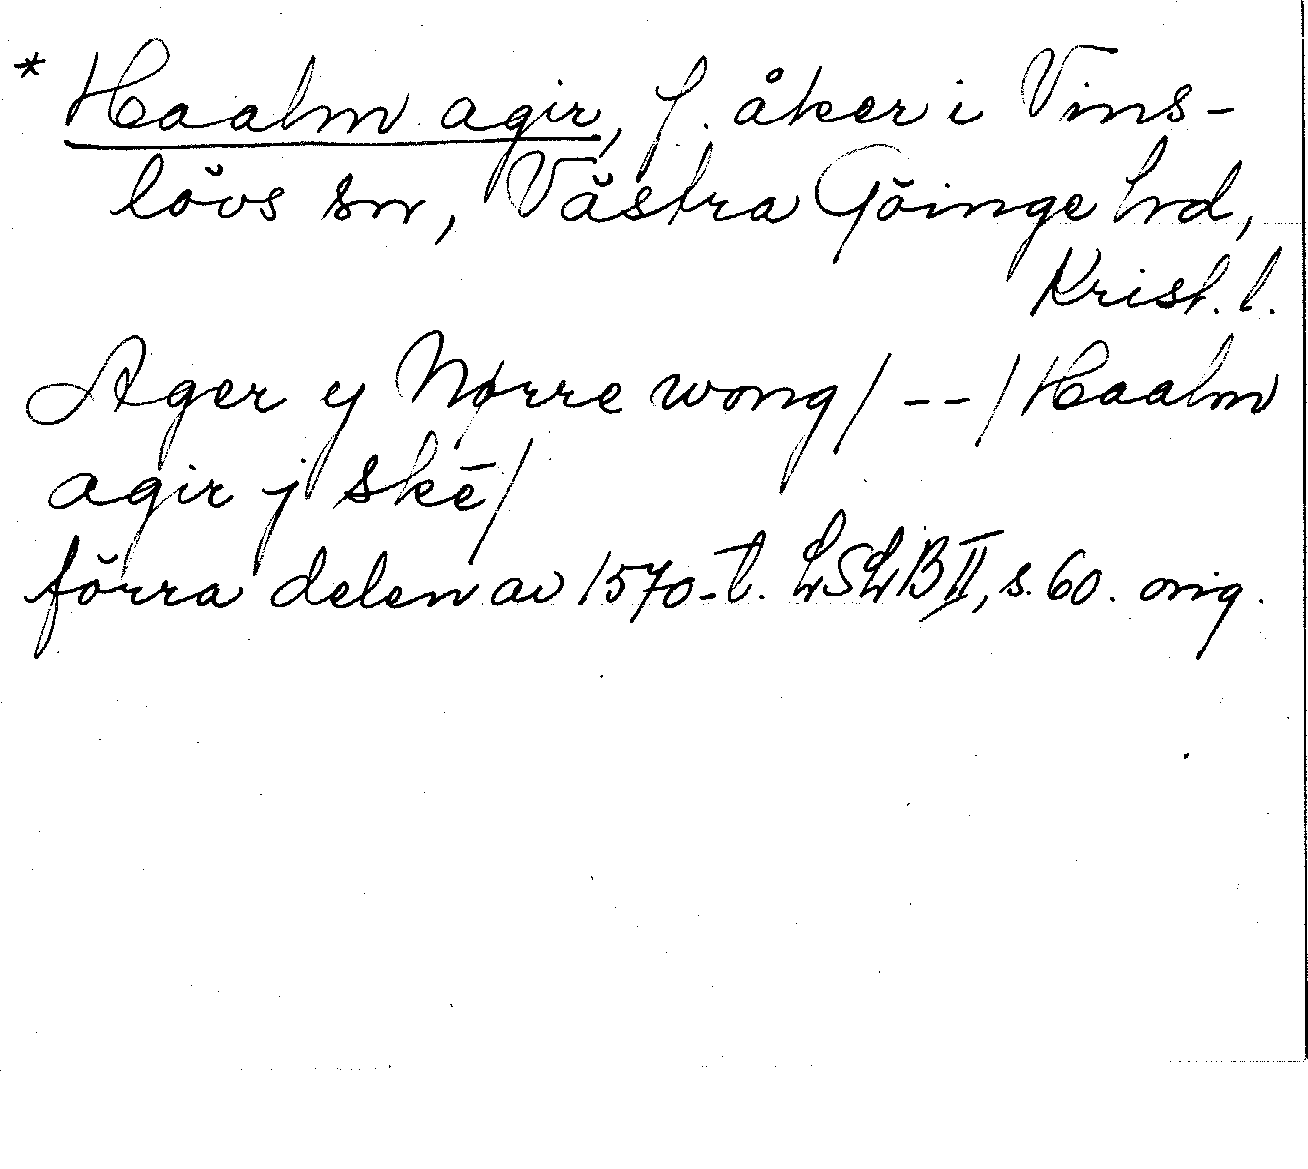 * Haalm agir, f. åker i Vins-
lövs sn, Västra Göinge hd,
Krist. l.
Ager y Nørre wong/ -- / Haalm
agir j skē/
förra delen av 1570-t. LSLB II, s. 60. orig.